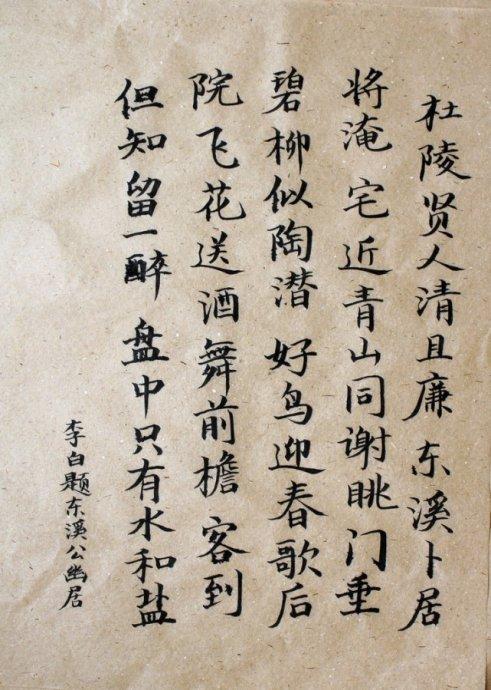 杜陵贤人清且廉 东溪卜居
将淹 宅近青山同谢眺 门垂
碧柳似陶潜 好鸟迎春歌后
院 飞花送酒舞前檐 客到
但知留一醉 盘中只有水和盐
李白题东溪公幽居